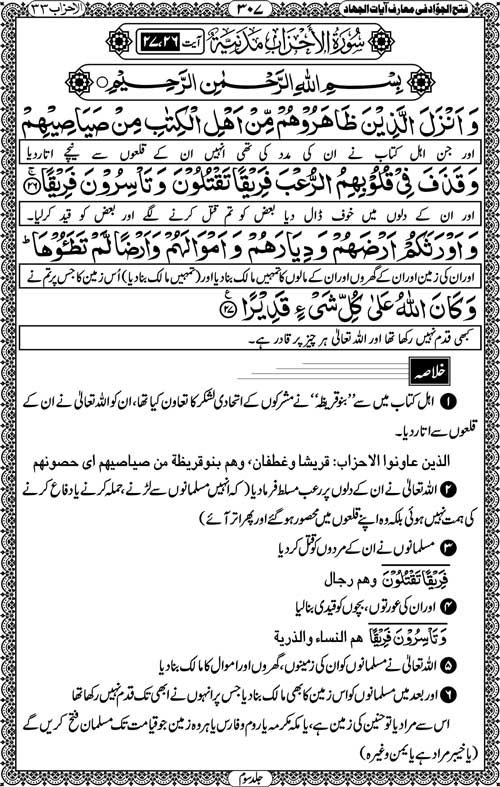 فتح الجوّاد فی معارف آیات الجهاد
۳۰۷
الاحزاب ۳۳
سُوْرَةُ الْاَحْزَابِ مَدَنِيَّةٌ آیت ۲۶،۲۷
بِسْمِ اللهِ الرَّحْمٰنِ الرَّحِيْمِ
وَ اَنْزَلَ الَّذِيْنَ ظَاهَرُوْهُمْ مِّنْ اَهْلِ الْكِتٰبِ مِنْ صَيَاصِيْهِمْ
اور جن اہل کتاب نے ان کی مدد کی تھی انہیں ان کے قلعوں سے نیچے اتاردیا
وَ قَذَفَ فِيْ قُلُوْبِهِمُ الرُّعْبَ فَرِيْقًا تَقْتُلُوْنَ وَ تَاْسِرُوْنَ فَرِيْقًا ۲۶
اور ان کے دلوں میں خوف ڈال دیا بعض کو تم قتل کرنے لگے اور بعض کو قید کرلیا۔
وَ اَوْرَثَكُمْ اَرْضَهُمْ وَ دِيَارَهُمْ وَ اَمْوَالَهُمْ وَ اَرْضًا لَّمْ تَطَـُٔوْهَا ؕ
اور ان کی زمین اور ان کے گھروں اور ان کے مالوں کا تمہیں مالک بنادیا اور (تمہیں مالک بنادیا) اُس زمین کا جس پر تم نے
وَ كَانَ اللهُ عَلٰى كُلِّ شَيْءٍ قَدِيْرًا ۲۷
کبھی قدم نہیں رکھا تھا اور اللہ تعالیٰ ہر چیز پر قادر ہے۔
خلاصہ
۱ اہل کتاب میں سے ’’بنو قریظہ‘‘ نے مشرکوں کے اتحادی لشکر کا تعاون کیا تھا، ان کو اللہ تعالیٰ نے ان کے
قلعوں سے اتار دیا۔
الذین عاونوا الاحزاب: قریشا وغطفان، وهم بنوقریظة من صیاصیهم ای حصونهم
۲ اللہ تعالیٰ نے ان کے دلوں پر رعب مسلط فرمادیا (کہ انہیں مسلمانوں سے لڑنے، حملہ کرنے یا دفاع کرنے
کی ہمت نہیں ہوئی بلکہ وہ اپنے قلعوں میں محصور ہوگئے اور پھر اتر آئے)
۳ مسلمانوں نے ان کے مردوں کو قتل کردیا
فَرِيْقًا تَقْتُلُوْنَ وهم رجال
۴ اور ان کی عورتوں، بچوں کو قیدی بنالیا
وَ تَاْسِرُوْنَ فَرِيْقًا هم النساء والذریة
۵ اللہ تعالیٰ نے مسلمانوں کو ان کی زمینوں، گھروں اور اموال کا مالک بنادیا
۶ اور بعد میں مسلمانوں کو اس زمین کا بھی مالک بنادیا جس پر انہوں نے ابھی تک قدم نہیں رکھا تھا
اس سے مراد یا تو حنین کی زمین ہے، یا مکہ مکرمہ یا روم و فارس یا ہر وہ زمین جو قیامت تک مسلمان فتح کریں گے
(یا خیبر مراد ہے یا یمن وغیرہ)
جلد سوم